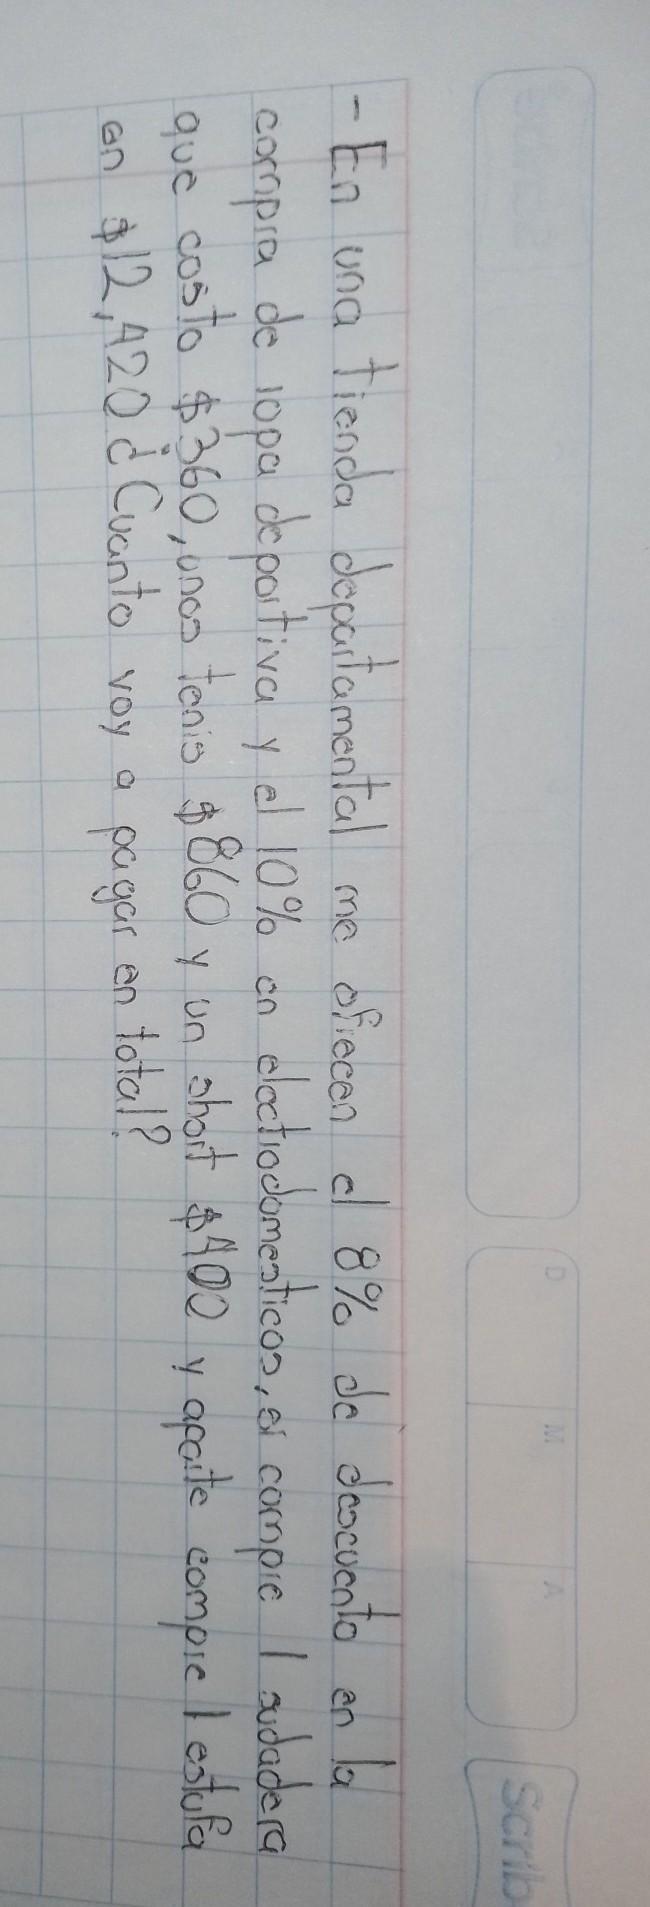 D M A
Scrib
- En una tienda departamental me ofrecen el 8% de descuento en la
compra de ropa deportiva y el 10% en electrodomesticos, si compre 1 sudadera
que costo $360, unos tenis $860 y un short $400 y aparte compre 1 estufa
en $12,420 ¿Cuanto voy a pagar en total?